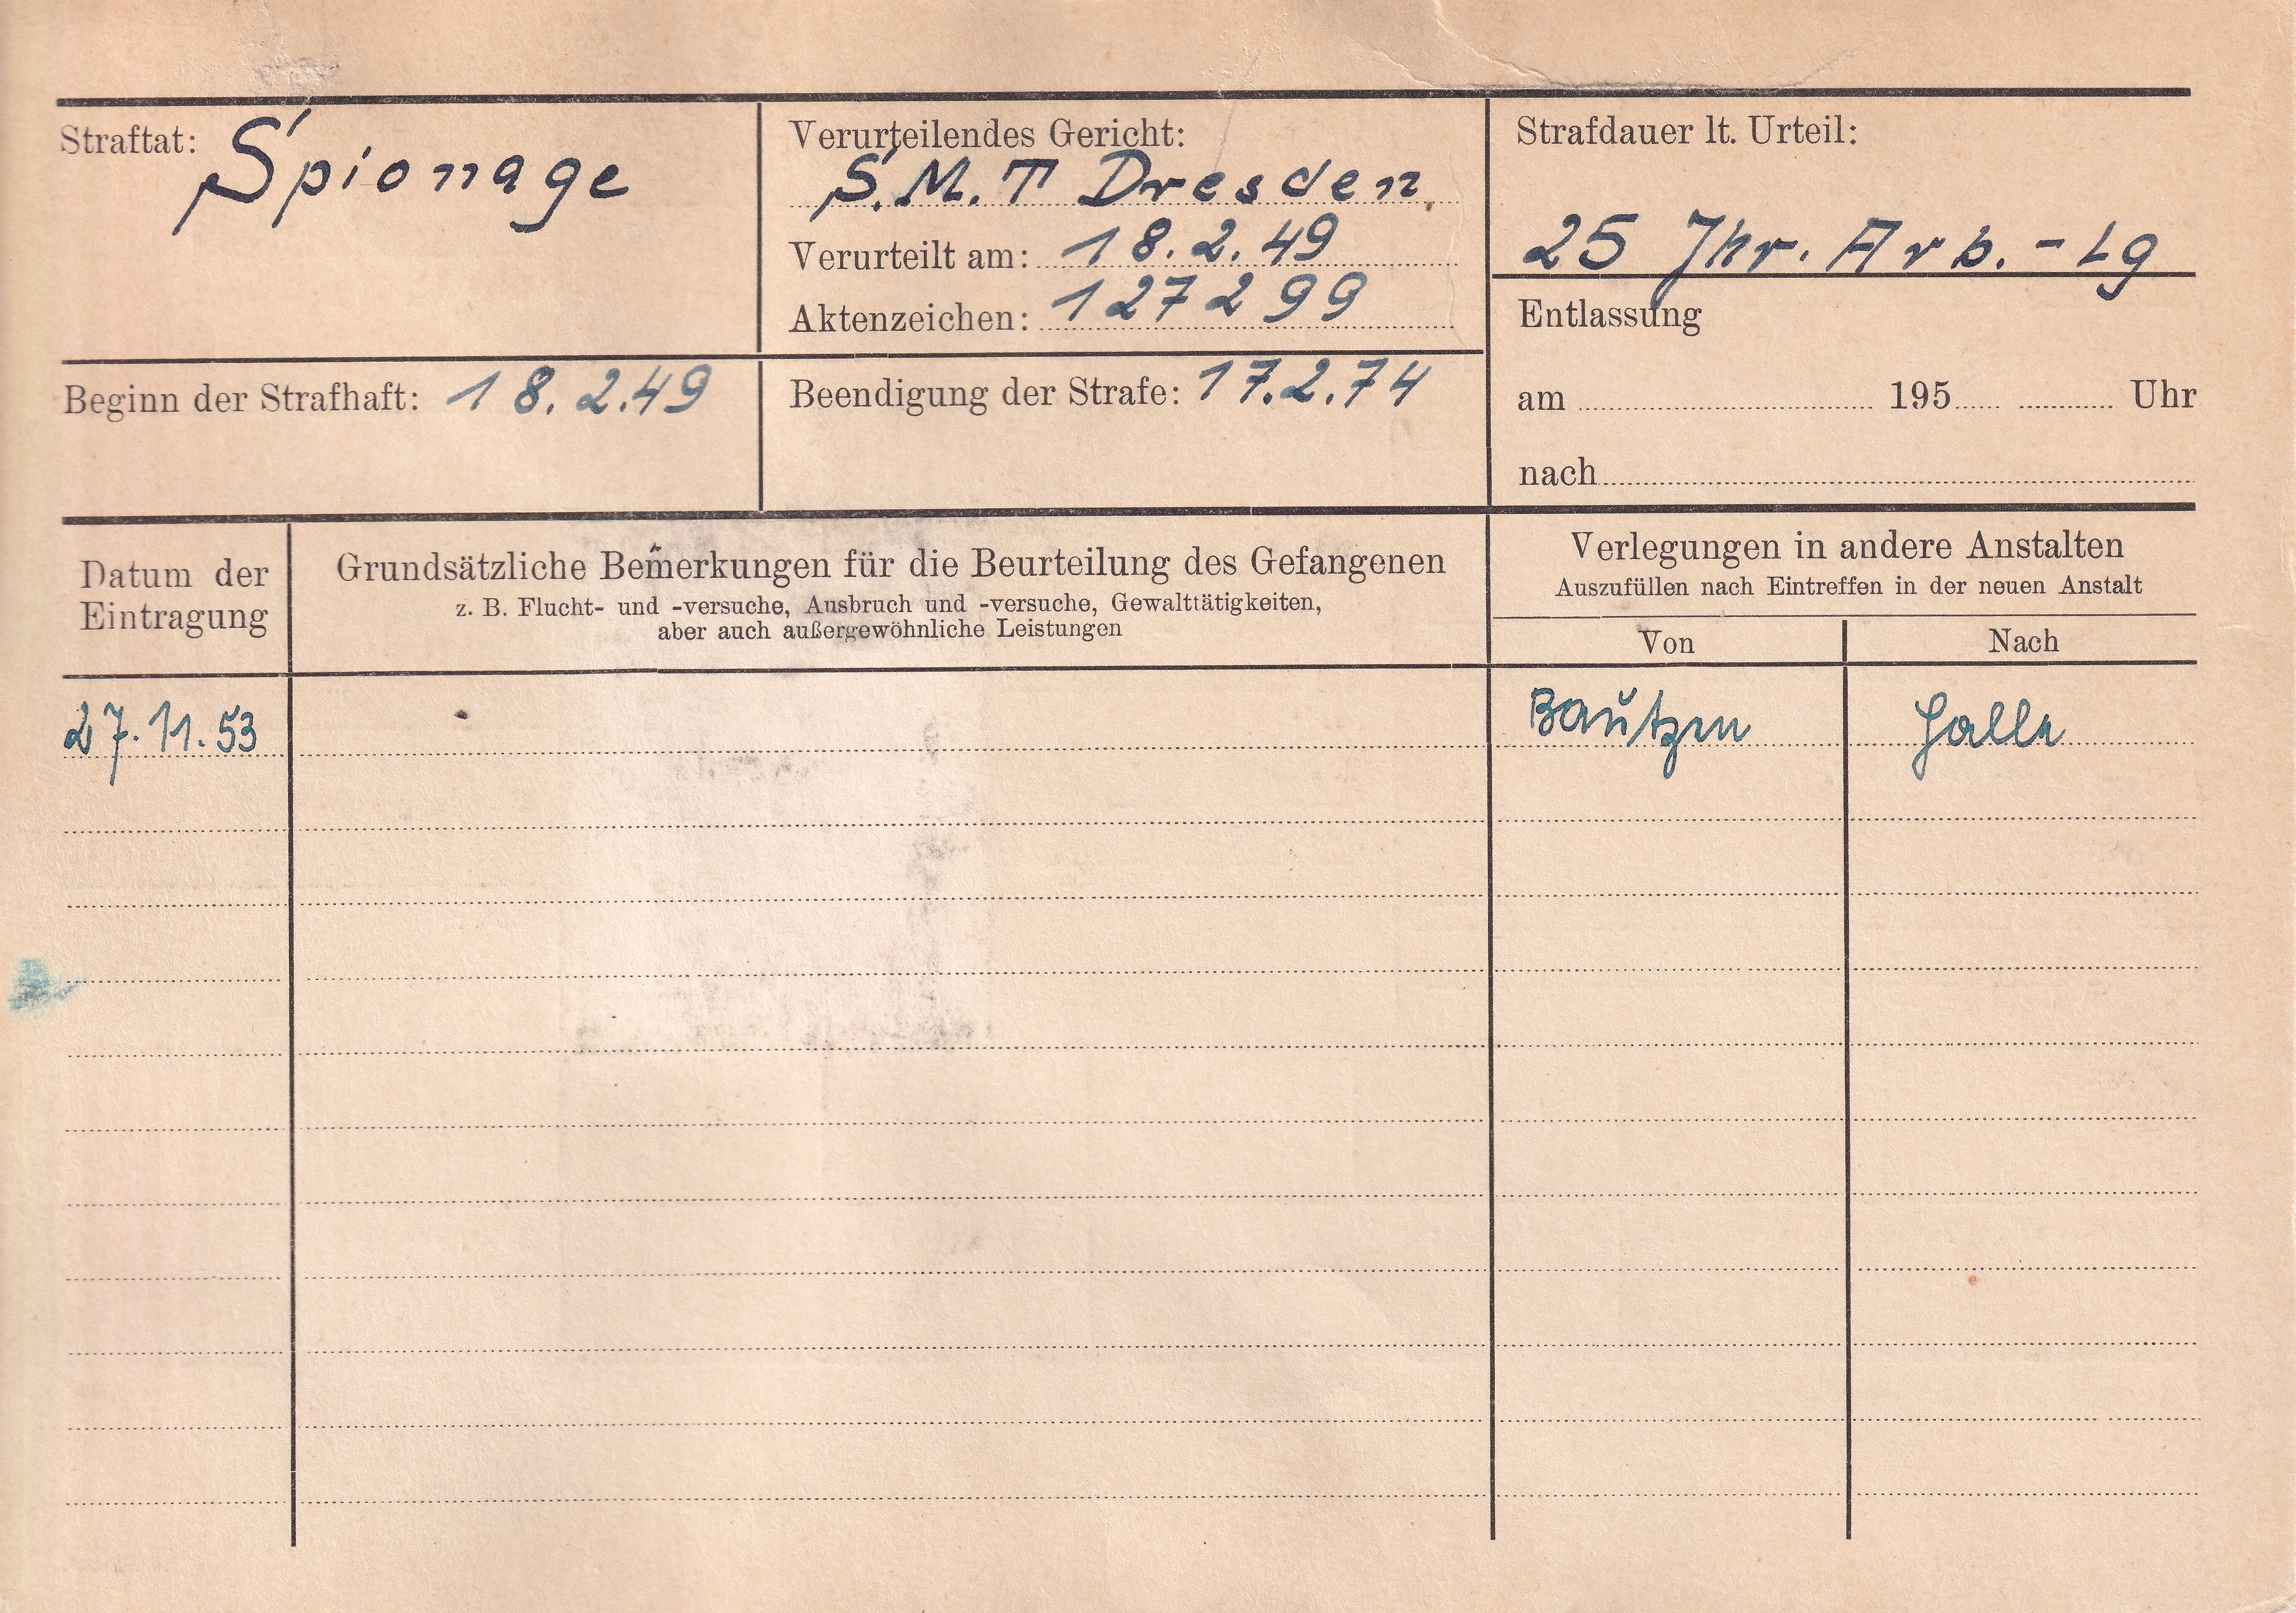 Straftat: Spionage
Verurteilendes Gericht:
S.M.T Dresden
Verurteilt am: 18.2.49
Aktenzeichen: 127299
Strafdauer lt. Urteil:
25 Jhr. Arb.-Lg
Beginn der Strafhaft: 18.2.49
Beendigung der Strafe: 17.2.74
Entlassung
am 195 Uhr
nach
Datum der
Eintragung
Grundsätzliche Bemerkungen für die Beurteilung des Gefangenen
z. B. Flucht- und -versuche, Ausbruch und -versuche, Gewalttätigkeiten,
aber auch außergewöhnliche Leistungen
Verlegungen in andere Anstalten
Auszufüllen nach Eintreffen in der neuen Anstalt
Von Nach
27.11.53 Bautzen Halle